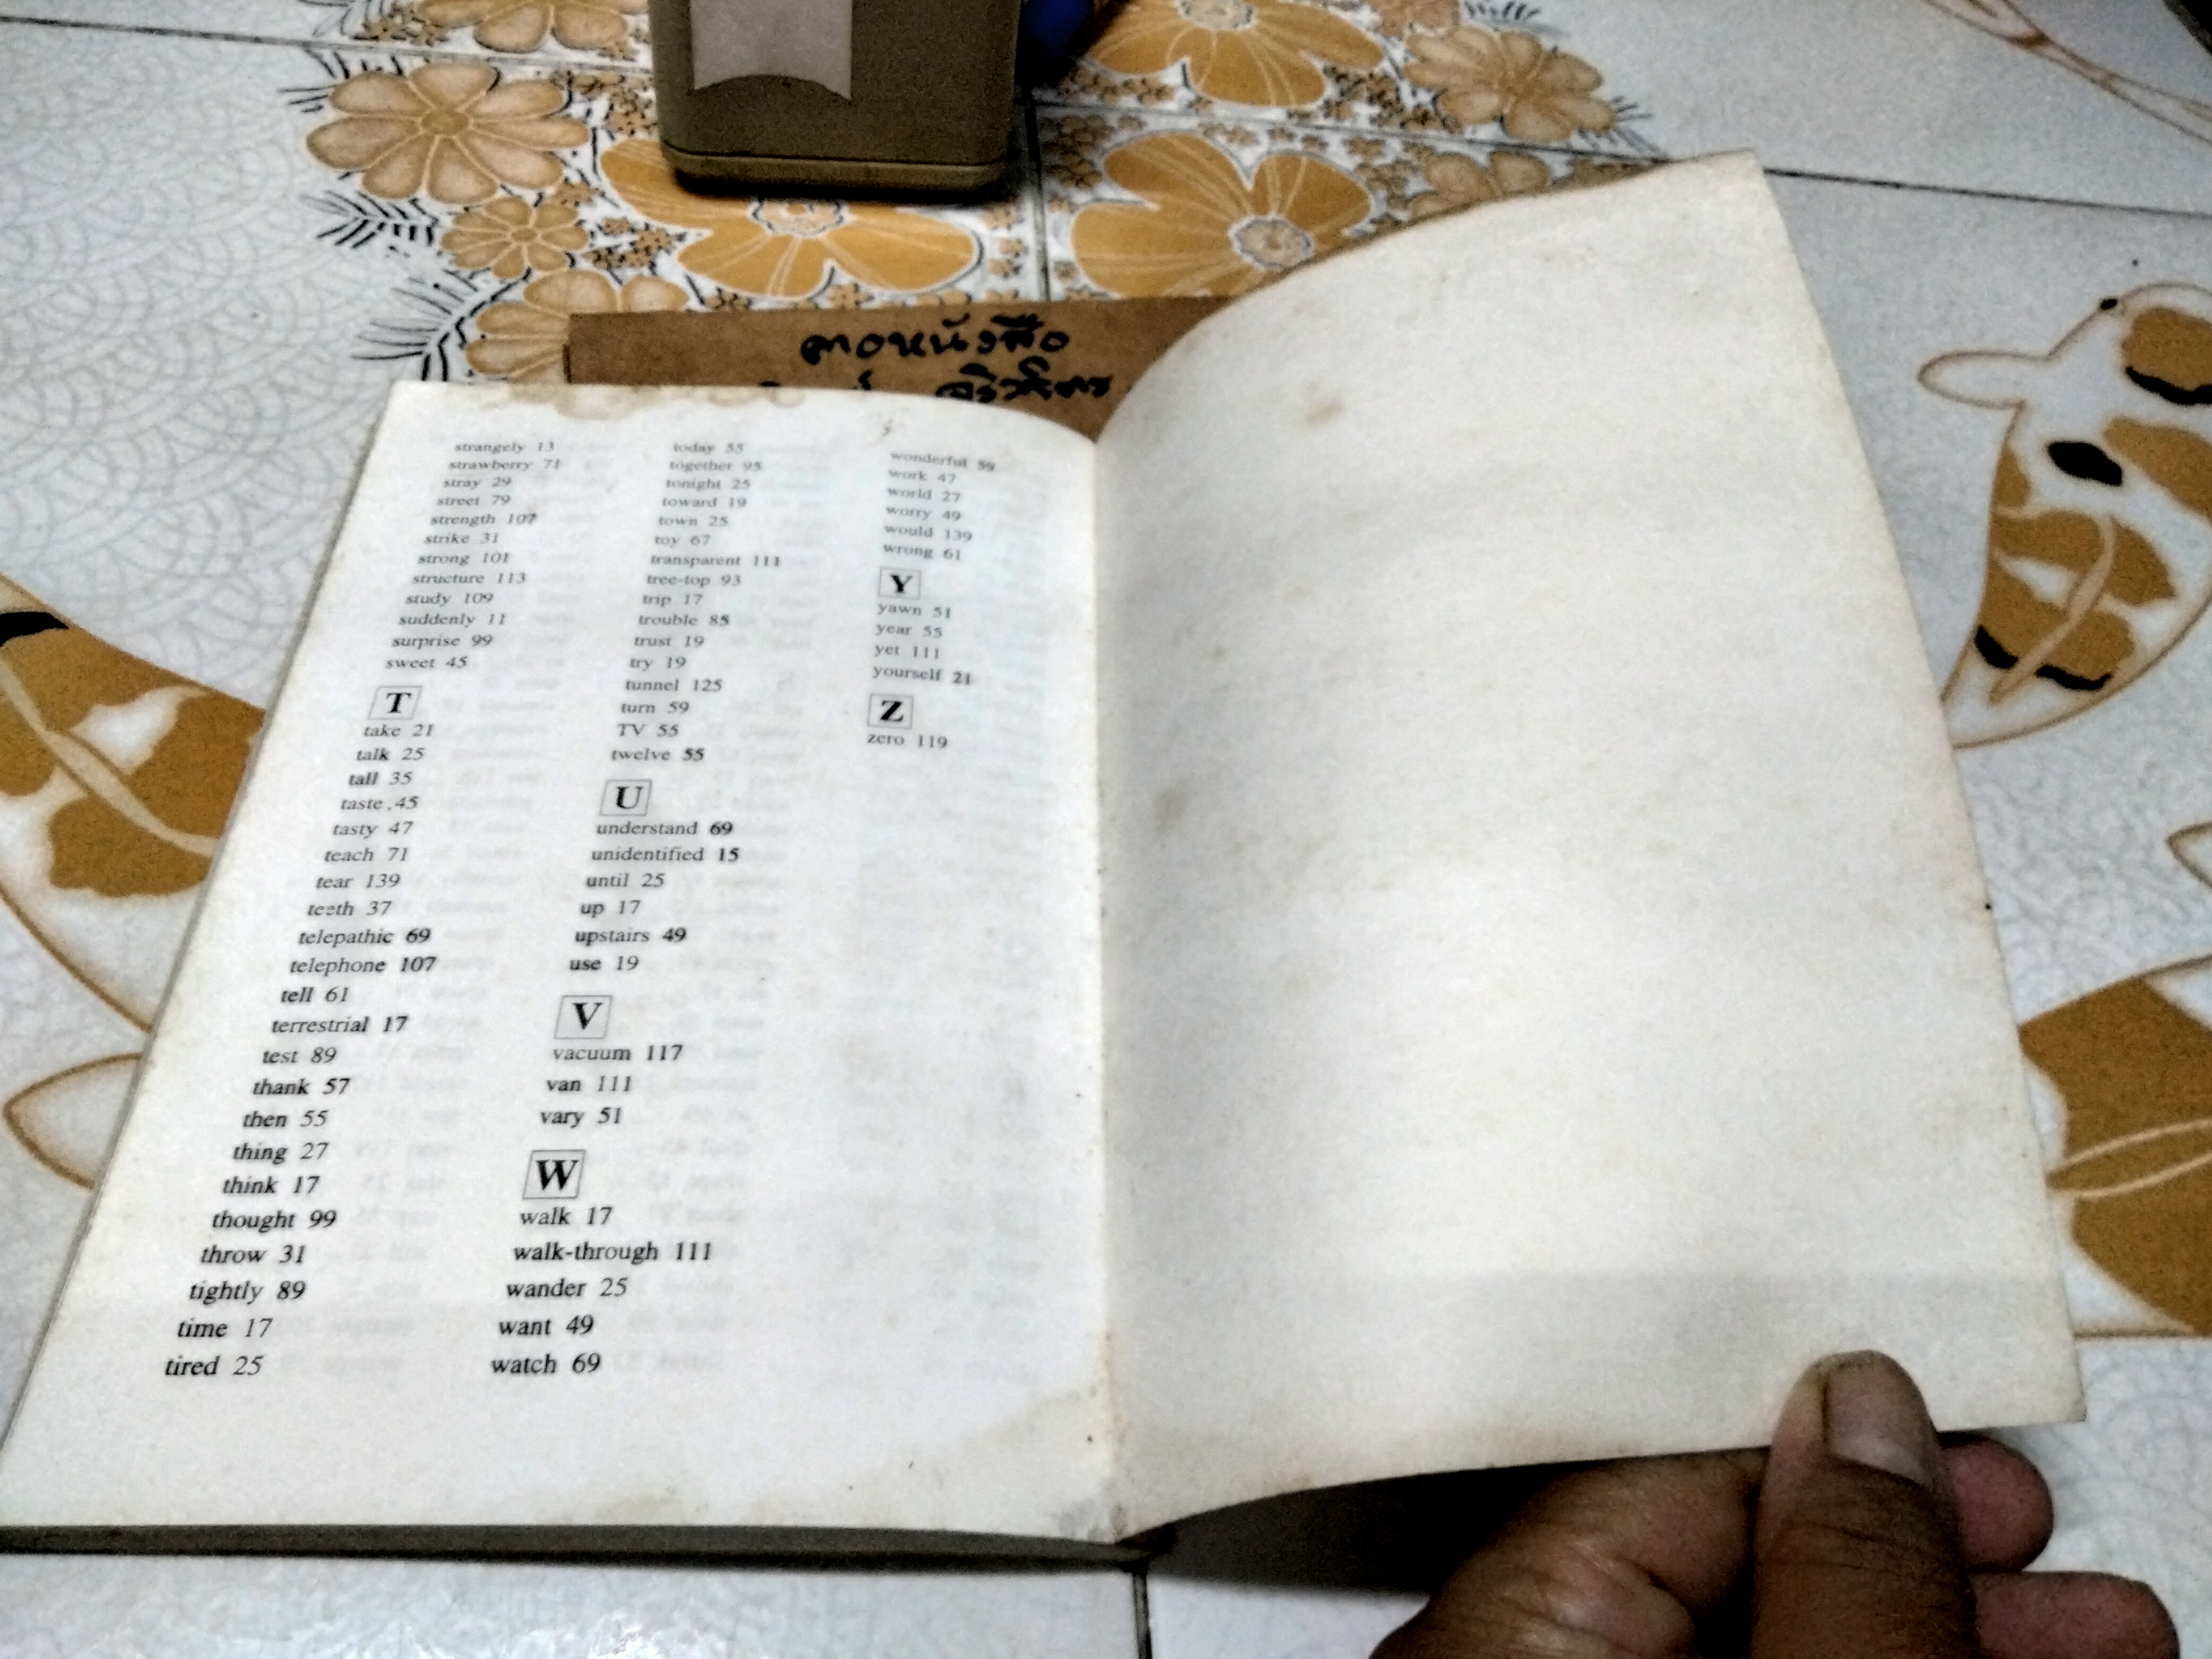 ลาดหนังสือ
strangely 13
strawberry 71
stray 29
street 79
strength 107
strike 31
strong 101
structure 113
study 109
suddenly 11
surprise 99
sweet 45
T
take 21
talk 25
tall 35
taste 45
tasty 47
teach 71
tear 139
teeth 37
telepathic 69
telephone 107
tell 61
terrestrial 17
test 89
thank 57
then 55
thing 27
think 17
thought 99
throw 31
tightly 89
time 17
tired 25
today 55
together 95
tonight 25
toward 19
town 25
toy 67
transparent 111
tree-top 93
trip 17
trouble 85
trust 19
try 19
tunnel 125
turn 59
TV 55
twelve 55
U
understand 69
unidentified 15
until 25
up 17
upstairs 49
use 19
V
vacuum 117
van 111
vary 51
W
walk 17
walk-through 111
wander 25
want 49
watch 69
wonderful 59
work 47
world 27
worry 49
would 139
wrong 61
Y
yawn 51
year 55
yet 111
yourself 21
Z
zero 119